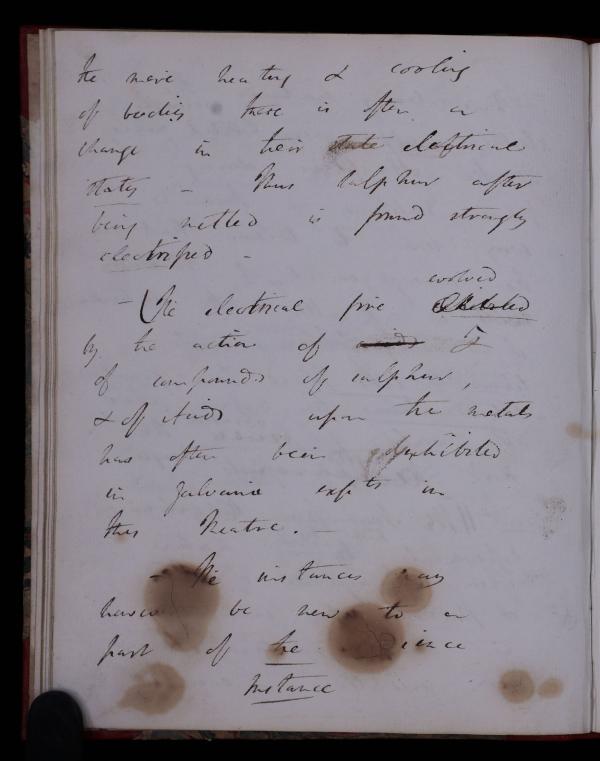 the mere heating & cooling
of bodies there is often a
change in their state electrical
states – Thus sulphur after
being melted is found strongly
electrified –
evolved
– The electrical fire exhibited
by the action of acids
of compounds of sulphur,
& of Acids upon the metals
has often been exhibited
in Galvanic expts in
this Theatre. –
– The instances may
however be new to a
part of the
Instance